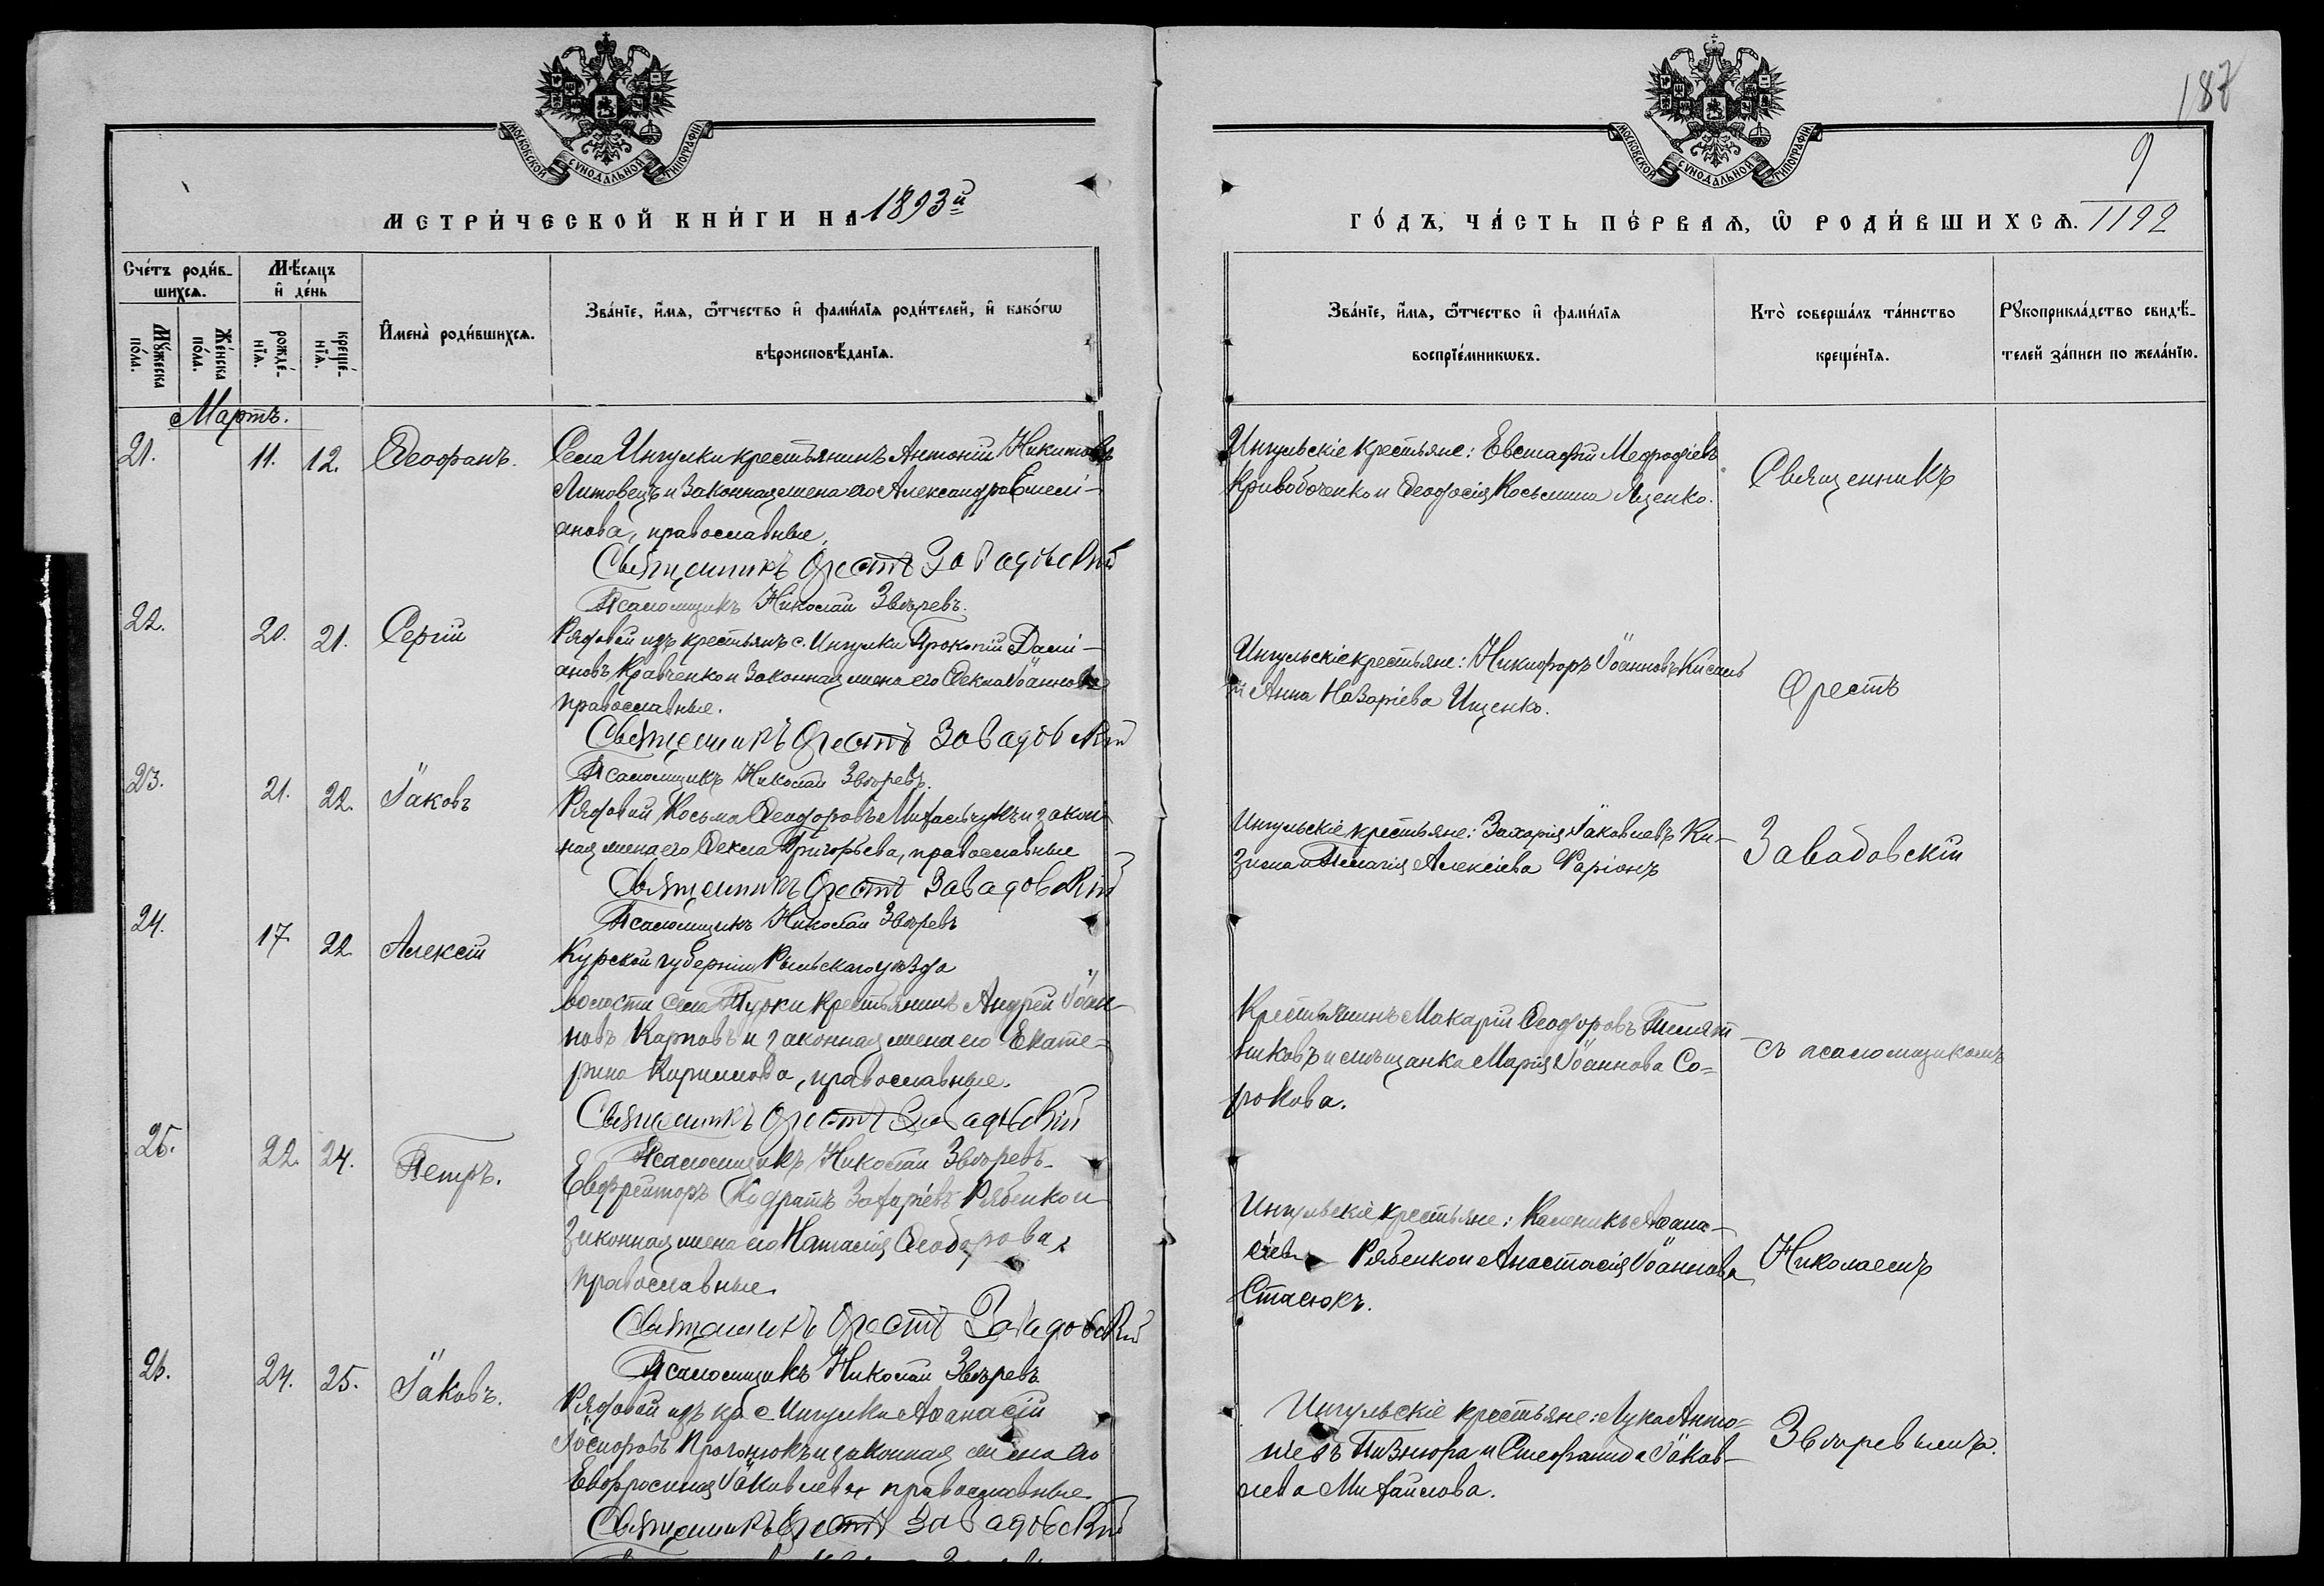 187
МОСКОВСКОЙ СѴНОДАЛЬНОЙ ТИПОГРАФІИ
МОСКОВСКОЙ СѴНОДАЛЬНОЙ ТИПОГРАФІИ
МЕТРИ́ЧЕСКОЙ КНИ́ГИ НА 1893й
ГО́ДЪ, ЧА́СТЬ ПЕ́РВАѦ, Ѽ РОДИ́ВШИХСѦ. 9
1192
Сче́тъ роди́в-
шихсѧ.
Мѣ́сяцъ
и҆ де́нь
Му́жеска по́ла.
Же́нска по́ла.
рожде́-нїѧ.
креще́-нїѧ.
И҆мена̀ роди́вшихсѧ.
Зва́нїе, и҆́мѧ, ѻ҆́тчество и҆ фами́лїѧ роди́телей, и҆ како́гѡ
вѣроисповѣ́данїѧ.
Зва́нїе, и҆́мѧ, ѻ҆́тчество и҆ фами́лїѧ
воспрїе́мникѡвъ.
Кто̀ соверша́лъ та́инство
креще́нїѧ.
Рꙋкоприкла́дство свидѣ́-
телей за́писи по жела́нїю.
Мартъ.
21. 11. 12. Ѳеофанъ. Села Ингулки крестьянинъ Антоній Никитовъ
Литовецъ и законная жена его Александра Емелі-
анова, православные.
Священникъ Орестъ Завадовскій
Псаломщикъ Николай Звѣревъ.
Ингульскіе крестьяне: Евстафій Меѳодіевъ
Кривобоченко и Ѳеодосія Косьмина Яценко.
Священникъ
22. 20. 21. Сергій Рядовой изъ крестьянъ с. Ингулки Прокопій Дамі-
ановъ Кравченко и законная жена его Ѳекла Іоаннова
православные.
Священникъ Орестъ Завадовскій
Псаломщикъ Николай Звѣревъ.
Ингульскіе крестьяне: Никифоръ Іоанновъ Кисель
и Анна Назаріева Ищенко.
Орестъ
23. 21. 22. Іаковъ Рядовой Косьма Ѳеодоровъ Михальчукъ и закон-
ная жена его Ѳекла Григорьева, православные
Священникъ Орестъ Завадовскій
Псаломщикъ Николай Звѣревъ
Ингульскіе крестьяне: Захарія Іаковлевъ Ки-
зима и Пелагія Алексіева Фаріонъ
Завадовскій
24. 17 22. Алексій Курской губерніи Рыльскаго уѣзда
волости села Турки крестьянинъ Андрей Іоан-
новъ Карповъ и законная жена его Екате-
рина Кириллова, православные.
Священникъ Орестъ Завадовскій
Псаломщикъ Николай Звѣревъ.
Крестьянинъ Макарій Ѳеодоровъ Телят-
никовъ и мѣщанка Марія Іоаннова Со-
рокова.
съ псаломщикомъ
25. 22. 24. Петръ. Евфрейторъ Кодратъ Захаріевъ Рябенко и
законная жена его Наталія Ѳеодорова,
православные.
Священникъ Орестъ Завадовскій
Псаломщикъ Николай Звѣревъ
Ингульскіе крестьяне: Каленикъ Аѳана-
сіевъ Рябенко и Анастасія Іоаннова
Стасюкъ.
Николаемъ
26. 24. 25. Іаковъ. Рядовой изъ кр. с Ингулки Аѳанасій
и законная жена его
Евфросинія Іаковлева православные.
Священникъ Орестъ Завадовскій
Ингульскіе крестьяне: Лука Анто-
ніевъ и Стефанида Іаков-
лева Михайлова.
Звѣревымъ.